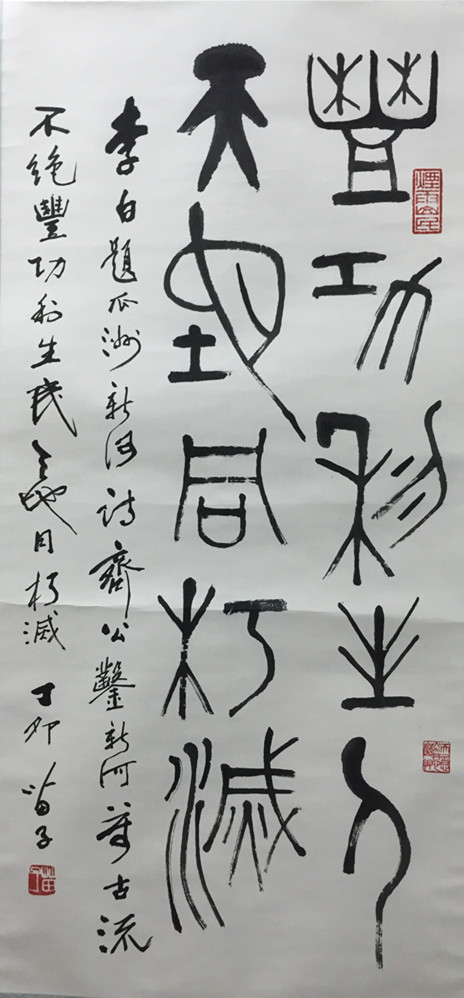 豐功利生人
天地同朽滅
李白題瓜洲新河詩齊公鑿新河萬古流
不絶豐功利生民天地同朽滅 丁卯 苗子
苗子